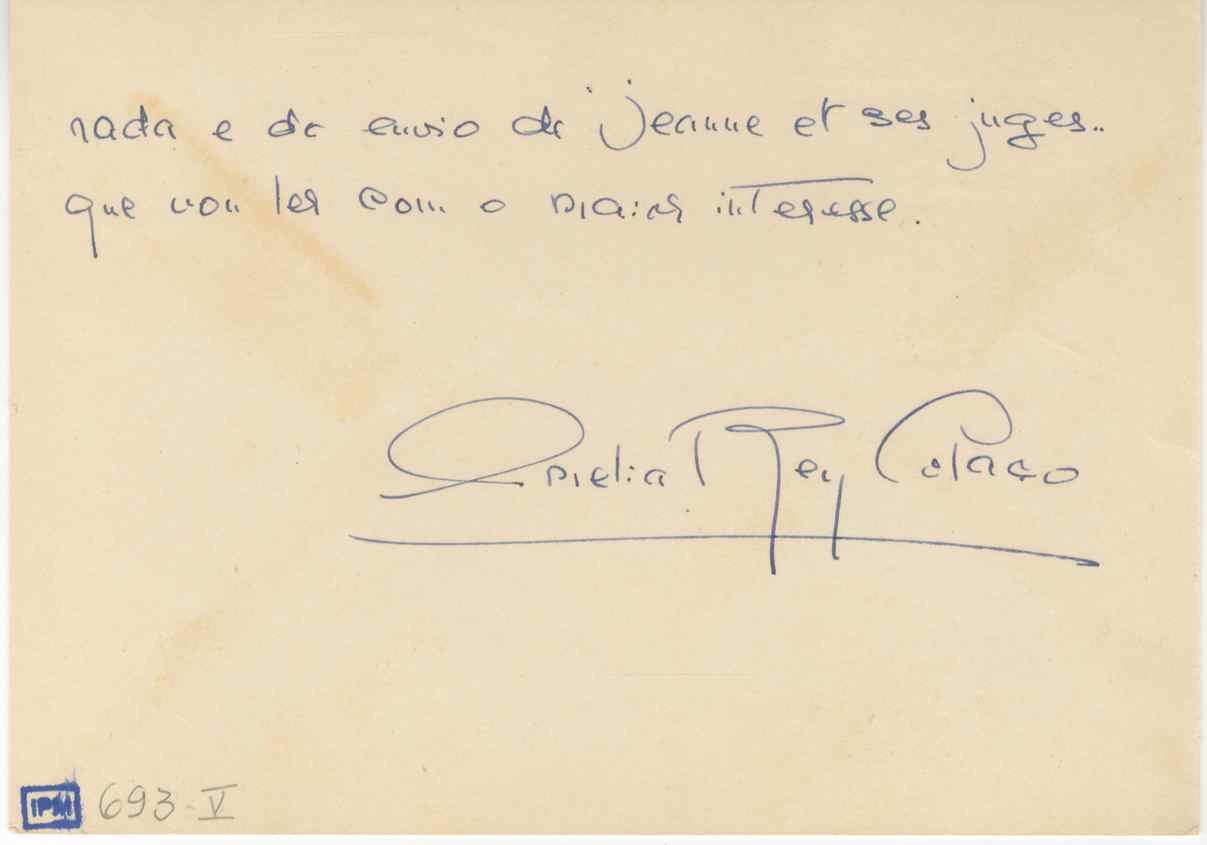 nada e do envio de "Jeanne et ses juges"
que vou ler com o maior interesse.
Amelia Rey Colaço
IPM 693-V